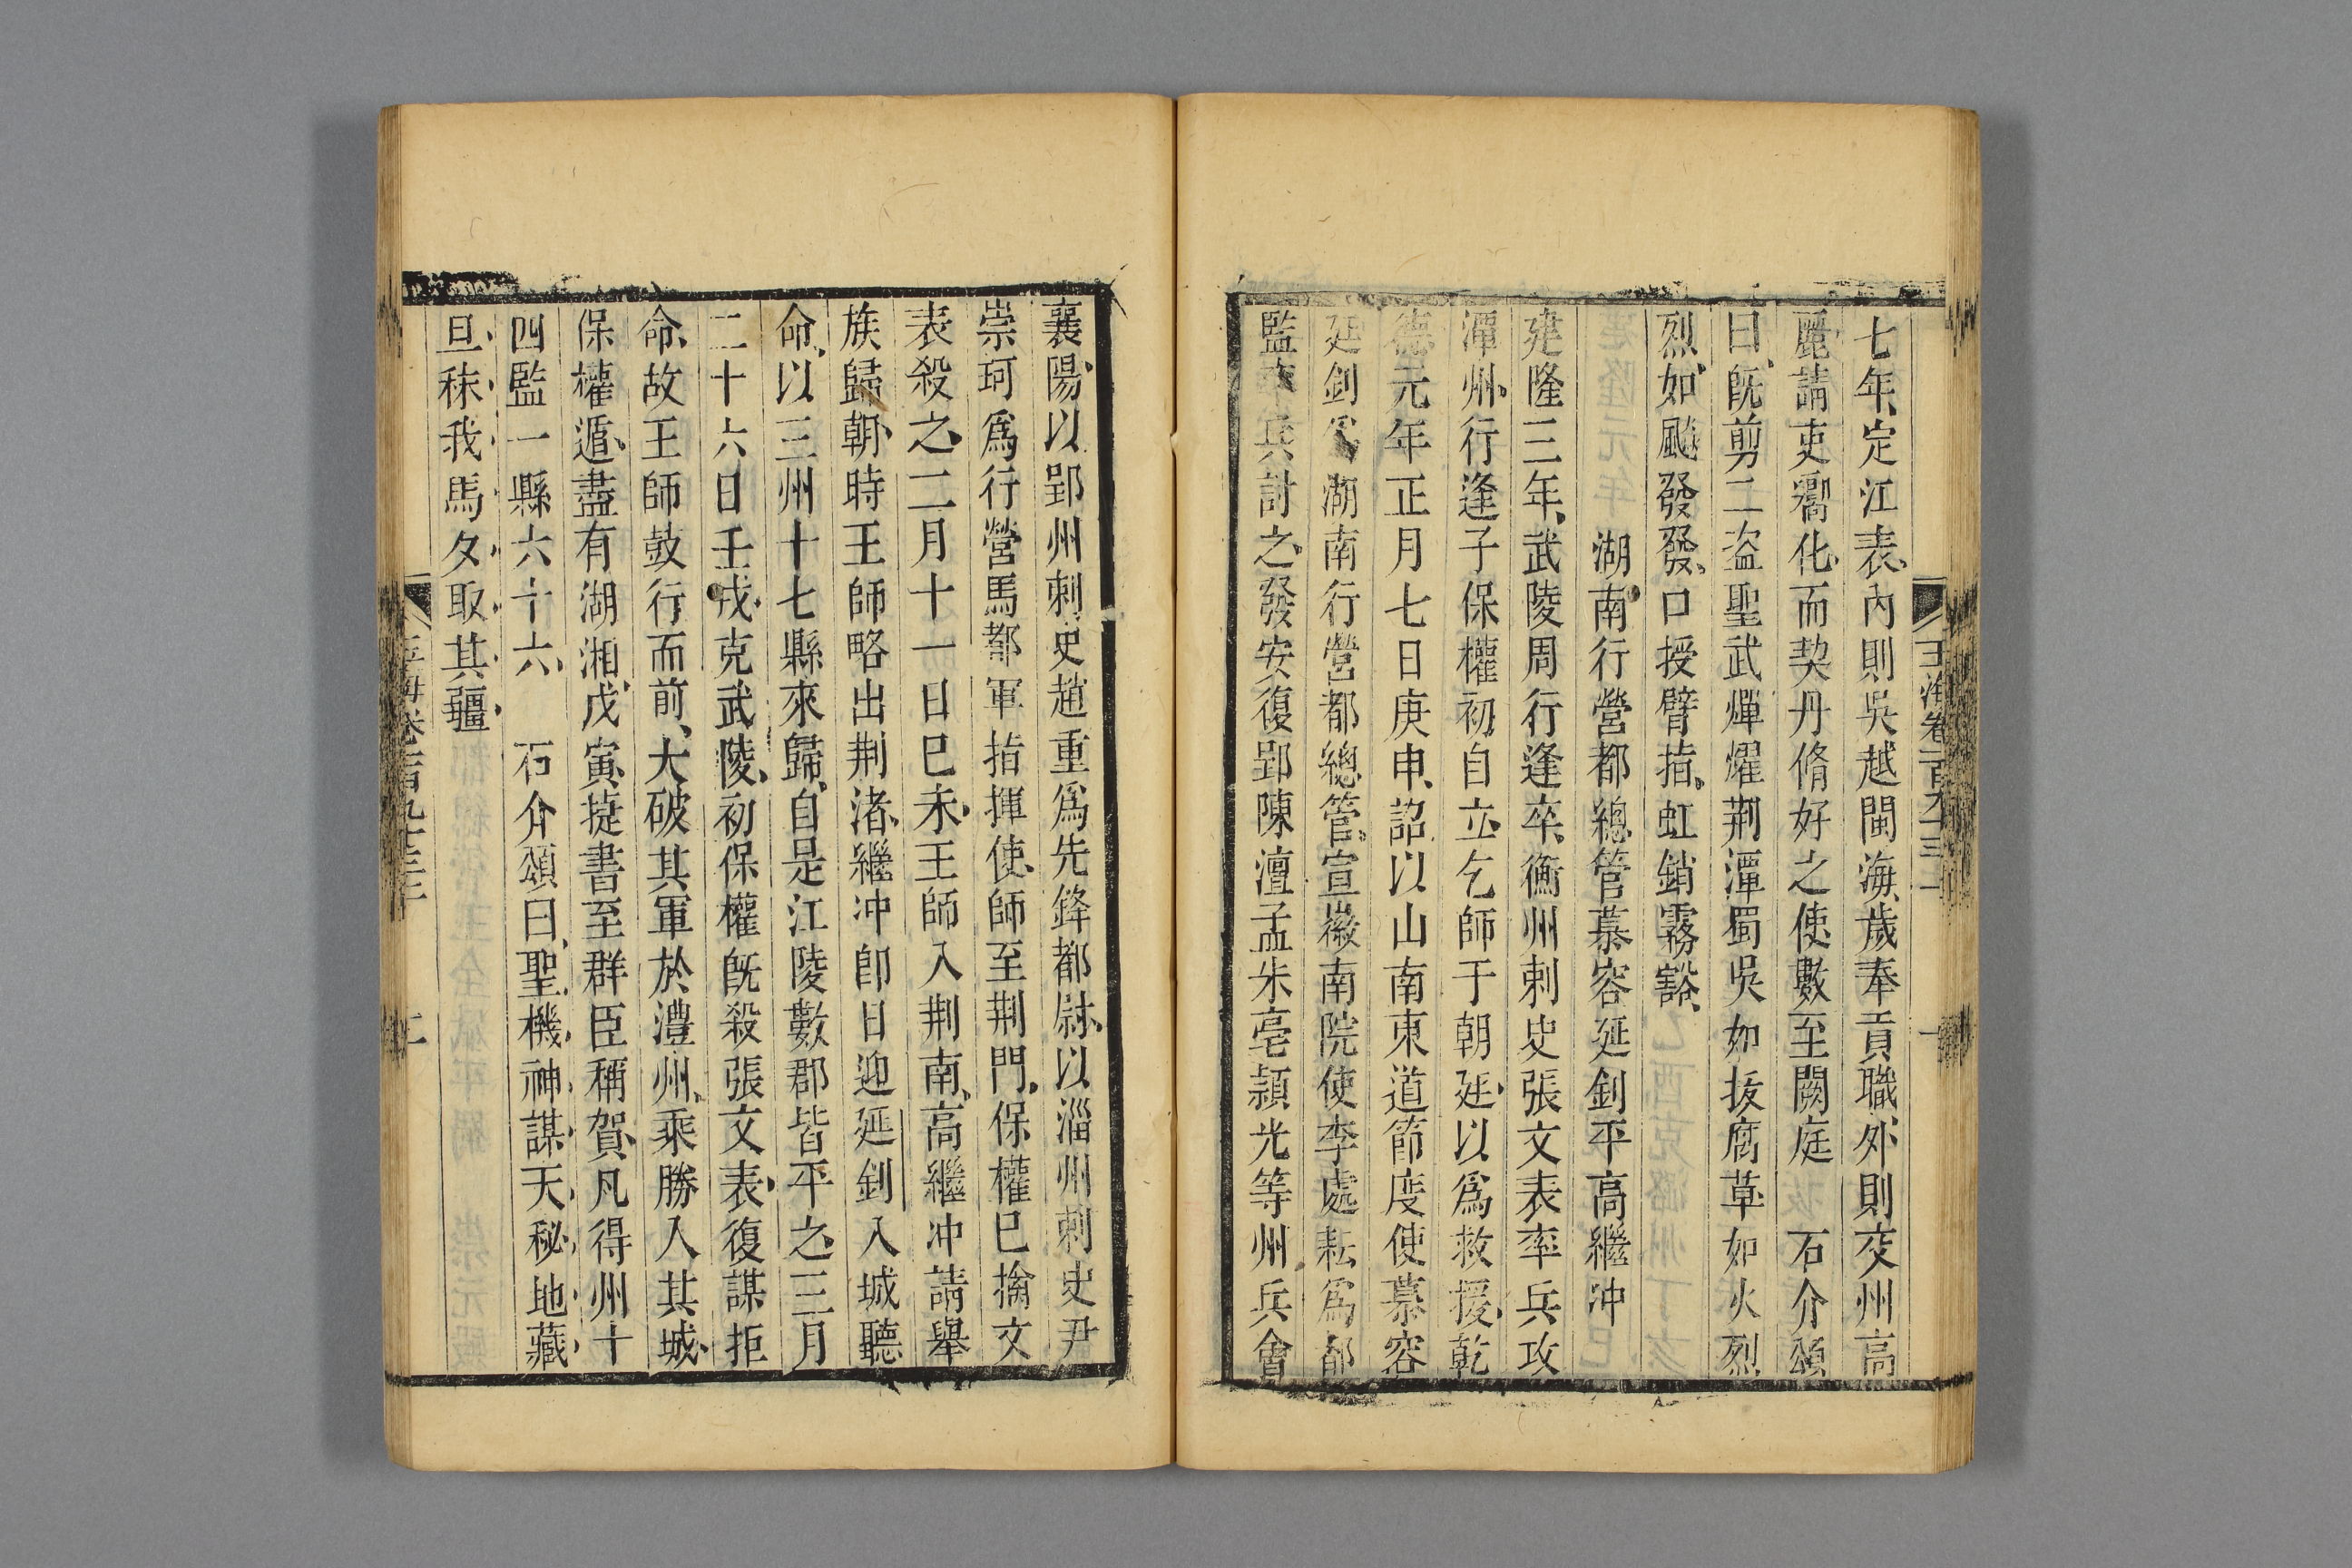 七年定江表內則吳越閩海歲奉貢職外則交州高
麗請吏嚮化而契丹脩好之使數至闕庭　石介頌
曰旣剪二盜聖武燀燿荆潭蜀吳如拔腐草如火烈
烈如颷發發口授臂指虹銷霧豁
湖南行營都總管慕容延釗平高繼冲
建隆三年武陵周行逢卒衡州刺史張文表率兵攻
潭州行逢子保權初自立乞師于朝廷以爲救援乾
德元年正月七日庚申詔以山南東道節度使慕容
延釗爲湖南行營都總管宣徽南院使李處耘爲都
監率兵討之發安復郢陳澶孟朱亳潁光等州兵會
襄陽以郢州刺史趙重爲先鋒都尉以淄州刺史尹
崇珂爲行營馬都軍指揮使師至荆門保權已擒文
表殺之二月十一日巳未王師入荆南高繼冲請舉
族歸朝時王師略出荆渚繼冲卽日迎延釗入城聽
命以三州十七縣來歸自是江陵數郡皆平之三月
二十六日壬戌克武陵初保權旣殺張文表復謀拒
命故王師鼓行而前大破其軍於澧州乘勝入其城
保權遁盡有湖湘戊寅捷書至群臣稱賀凡得州十
四監一縣六十六　石介頌曰聖機神謀天秘地藏
旦秣我馬夕取其疆
玉海卷一百九十三上
一
玉海卷一百九十三上
二